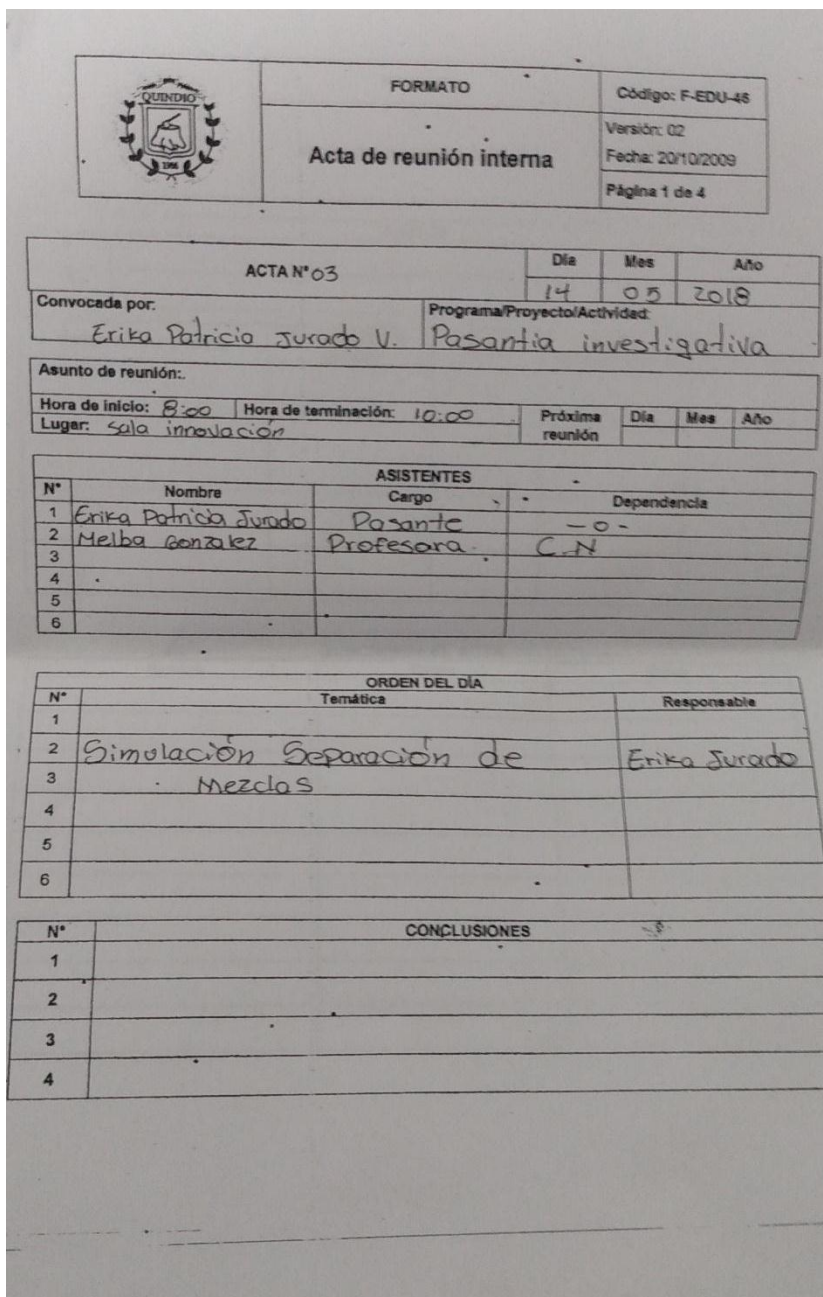 QUINDIO
1966
FORMATO
Acta de reunión interna
Código: F-EDU-46
Versión: 02
Fecha: 20/10/2009
Página 1 de 4
ACTA N° 03
Día Mes Año
14 05 2018
Convocada por:
Erika Patricia Jurado V.
Programa/Proyecto/Actividad:
Pasantia investigativa
Asunto de reunión:
Hora de inicio: 8:00 Hora de terminación: 10:00
Lugar: sala innovación
Próxima reunión Día Mes Año
ASISTENTES
N° Nombre Cargo Dependencia
1 Erika Patricia Jurado Pasante - o -
2 Melba Gonzalez Profesora C.N
3
4
5
6
ORDEN DEL DÍA
N° Temática Responsable
1
2 Simulación Separación de Erika Jurado
3 Mezclas
4
5
6
N° CONCLUSIONES
1
2
3
4